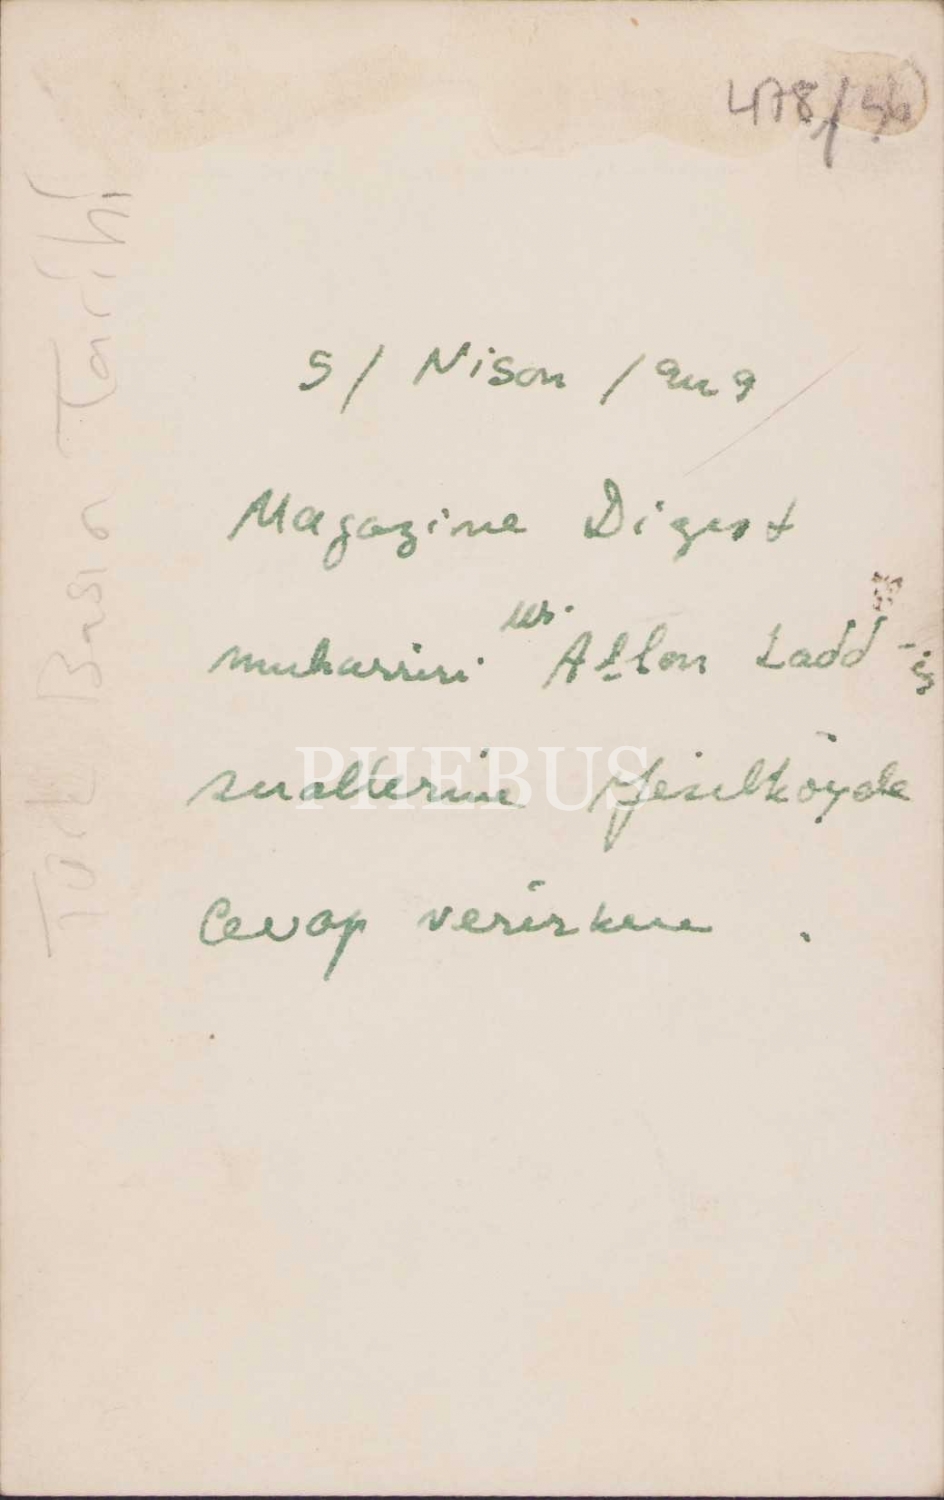 478/56
5/ Nisan /949
Magazine Digest
muharriri Mr. Allan Ladd-in
suallerine Yeşilköyde
Cevap verirken .
Türk Basın Tarihi
PHEBUS